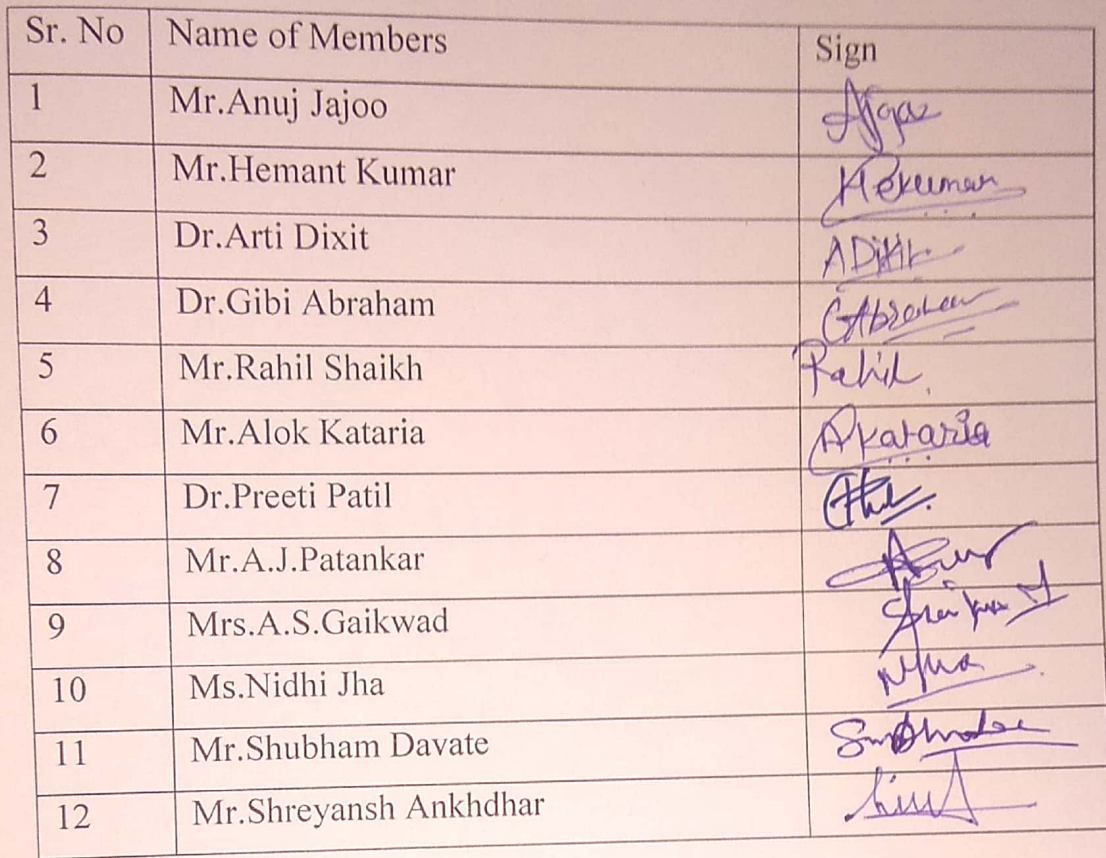 Sr. No Name of Members Sign
1 Mr.Anuj Jajoo
2 Mr.Hemant Kumar HeKumar
3 Dr.Arti Dixit ADixit
4 Dr.Gibi Abraham GAbraham
5 Mr.Rahil Shaikh Rahil
6 Mr.Alok Kataria AKataria
7 Dr.Preeti Patil
8 Mr.A.J.Patankar
9 Mrs.A.S.Gaikwad
10 Ms.Nidhi Jha
11 Mr.Shubham Davate
12 Mr.Shreyansh Ankhdhar